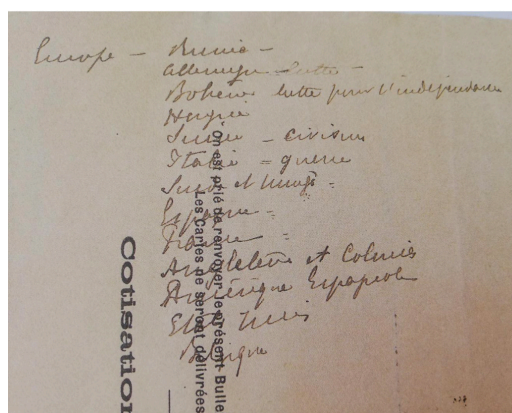 Europe — Russie —
Allemagne — lutte —
Bohême lutte pour l'indépendance
Hongrie
Suisse — civisme
Italie = guerre
Suède et =
Espagne =
France =
Angleterre et Colonies
Amérique Espagnole
Etats Unis
Belgique
On est prié de renvoyer le présent Bulle
Les Cartes de seront délivrées
Cotisation